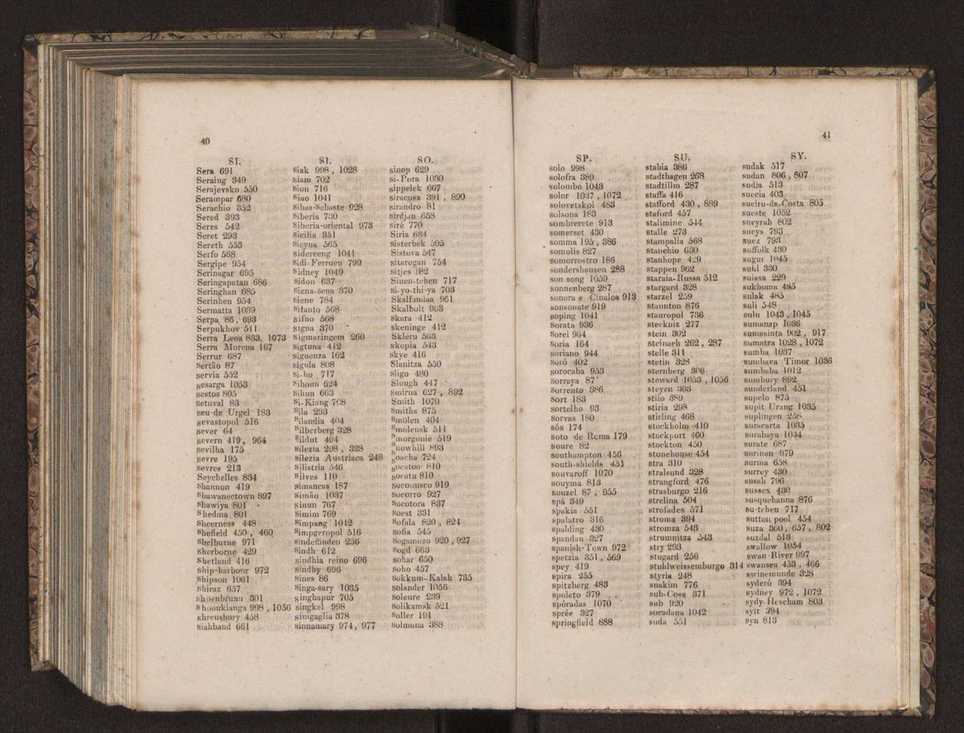 40
SI.
Sera 691
Seraing 349
Serajevsko 550
Serampar 680
Serachio 352
Sered 393
Seres 542
Seret 293
Sereth 553
Serfo 568
Sergipe 954
Serinagar 695
Seringapatan 686
Seringhan 685
Serinhen 954
Sermatta 1039
Serpa 86, 693
Serpukhov 511
Serra Leoa 853, 1073
Serra Morena 167
Serrur 687
Sertão 87
servia 552
sesarga 1053
sestos 805
setuval 83
seu de Urgel 183
sevastopol 516
sever 64
severn 419, 964
sevilha 175
sevre 195
sevres 213
Seychelles 834
Shannon 419
Shawanectown 897
Shawiya 801
Shedma 801
Sheerness 448
Shefield 450, 460
Shelburne 971
Sherborne 429
Shetland 416
Ship-harbour 972
Shipson 1061
Shiraz 657
Shoenbrunn 301
Shooukianga 998, 1056
shreusbury 458
Siahband 661
SI.
Siak 998, 1028
Siam 702
Sian 716
Siao 1041
Sibas-Sebaste 928
Siberia 730
Siberia-oriental 973
Sicilia 351
Sicyna 565
Sidereeng 1041
Sidi-Ferruen 799
Sidney 1049
Sidon 637
Siena-sena 370
Siene 784
Sifanto 568
Sifno 568
Signa 370
Sigmaringem 260
Sigtuna 412
Siguenza 162
Sigula 808
Si-hu 717
Sihoun 624
Sihun 663
Si-Kiang 708
Sila 293
Silandia 404
Silberberg 328
Sildut 404
Silezia 298, 328
Silezia Austriaca 248
Silistria 546
Silves 110
Simancas 187
Simão 1037
Simum 767
Simim 769
Simpang 1012
Simpgeropol 516
Sindelfinden 256
Sindh 612
Sindhia reino 696
Sindhy 696
Sines 86
Singa-sary 1035
singhapur 705
singkel 998
sinigaglia 378
sinnamary 974, 977
SO.
sinop 629
Si-Pora 1030
sippelek 667
siracusa 391, 899
sirandro 81
sirdjan 658
siré 770
Siria 634
Sisterbek 505
Sistova 547
sitaragan 754
sitjes 182
Siuen-tchen 717
si-yo-thi-ya 703
Skalfandaa 961
Skalholt 963
skara 412
skeninge 412
Skleru 563
skopia 543
skye 416
Slanitza 550
Sligo 480
Slough 447
Smirna 627, 892
Smith 1070
Smiths 875
Smolen 404
smolensk 511
smorgonie 519
snowhill 893
soacha 724
sorata 810
soconusco 919
socorro 927
socotora 837
Soest 331
Sofala 820, 824
sofia 545
Sogamozo 920, 927
sogd 663
sohar 650
soho 457
Sokkum-Kalah 735
solander 1056
soleure 239
solikamsk 521
soller 191
solmona 388
41
SP.
solo 998
solofra 389
solombo 1043
solor 1047, 1072
solovetzkoi 483
solsona 183
sombrerete 913
somerset 430
somma 195, 386
somolis 827
somorrostro 186
sondershausen 288
son song 1059
sonnenberg 287
sonora e Cinaloa 913
sonsonate 919
soping 1041
Sorata 936
Sorei 964
Soria 164
soriano 944
Soró 402
sorocaba 953
Sorraya 87
Sorrento 386
Sort 183
sortelho 93
Sorvas 180
sós 174
Soto de Roma 179
Soure 82
southampton 456
south-shields 451
souvaroff 1070
souyma 813
souzel 87, 955
spá 349
spakia 551
spalatro 316
spalding 430
spandau 327
spanish-Town 972
spezia 351, 569
spey 419
spira 255
spitzberg 483
spoleto 379
spórades 1070
sprée 327
springfield 888
SU.
stabia 386
stadthagen 268
stadtillm 287
staffa 416
stafford 430, 889
staford 457
stalimine 544
stalle 273
stampalla 568
stanchio 630
stanhope 429
stappen 962
staraia-Russa 512
stargard 328
starzel 259
staunton 876
stauropol 736
steckniz 277
stein 302
steinach 262, 287
stelle 311
stetin 328
sternberg 306
steward 1053, 1056
steyen 303
stilo 389
stiria 298
stirling 468
stockholm 410
stockport 460
stockton 450
stonehouse 454
stra 310
stralsund 328
strangford 476
strasburgo 216
strelina 504
strofades 571
stroma 394
stromza 543
strummitza 543
stry 293
stugard 256
stuhlweissemburgo 314
styria 248
suakim 776
sub-Cosa 371
sub 920
soradana 1042
suda 551
SY.
sudak 517
sudan 806, 807
sudia 513
suecia 403
sueiro-da-Costa 805
sueste 1052
sueyrah 802
sueys 793
suez 793
suffolk 430
sugur 1045
suhl 330
suissa 229
sukhona 485
sulak 485
sali 548
sulu 1043, 1045
sumanap 1036
sumasinta 902, 917
sumatra 1028, 1072
sumba 1037
sumbava Timor 1036
sumbaba 1012
sumbury 892
sunderland 451
supelo 875
supit Urang 1035
suplingen 258
suracarta 1035
surabaya 1034
surate 687
surinen 979
surma 658
surrey 430
susah 796
sussex 430
susquehanna 876
su-tchen 717
sutton pool 454
suza 360, 657, 802
suzdal 513
swallow 1054
swan River 997
swansea 433, 466
swinemunde 328
syderö 394
sydney 972, 1072
sydy Hescham 803
syit 394
syn 813